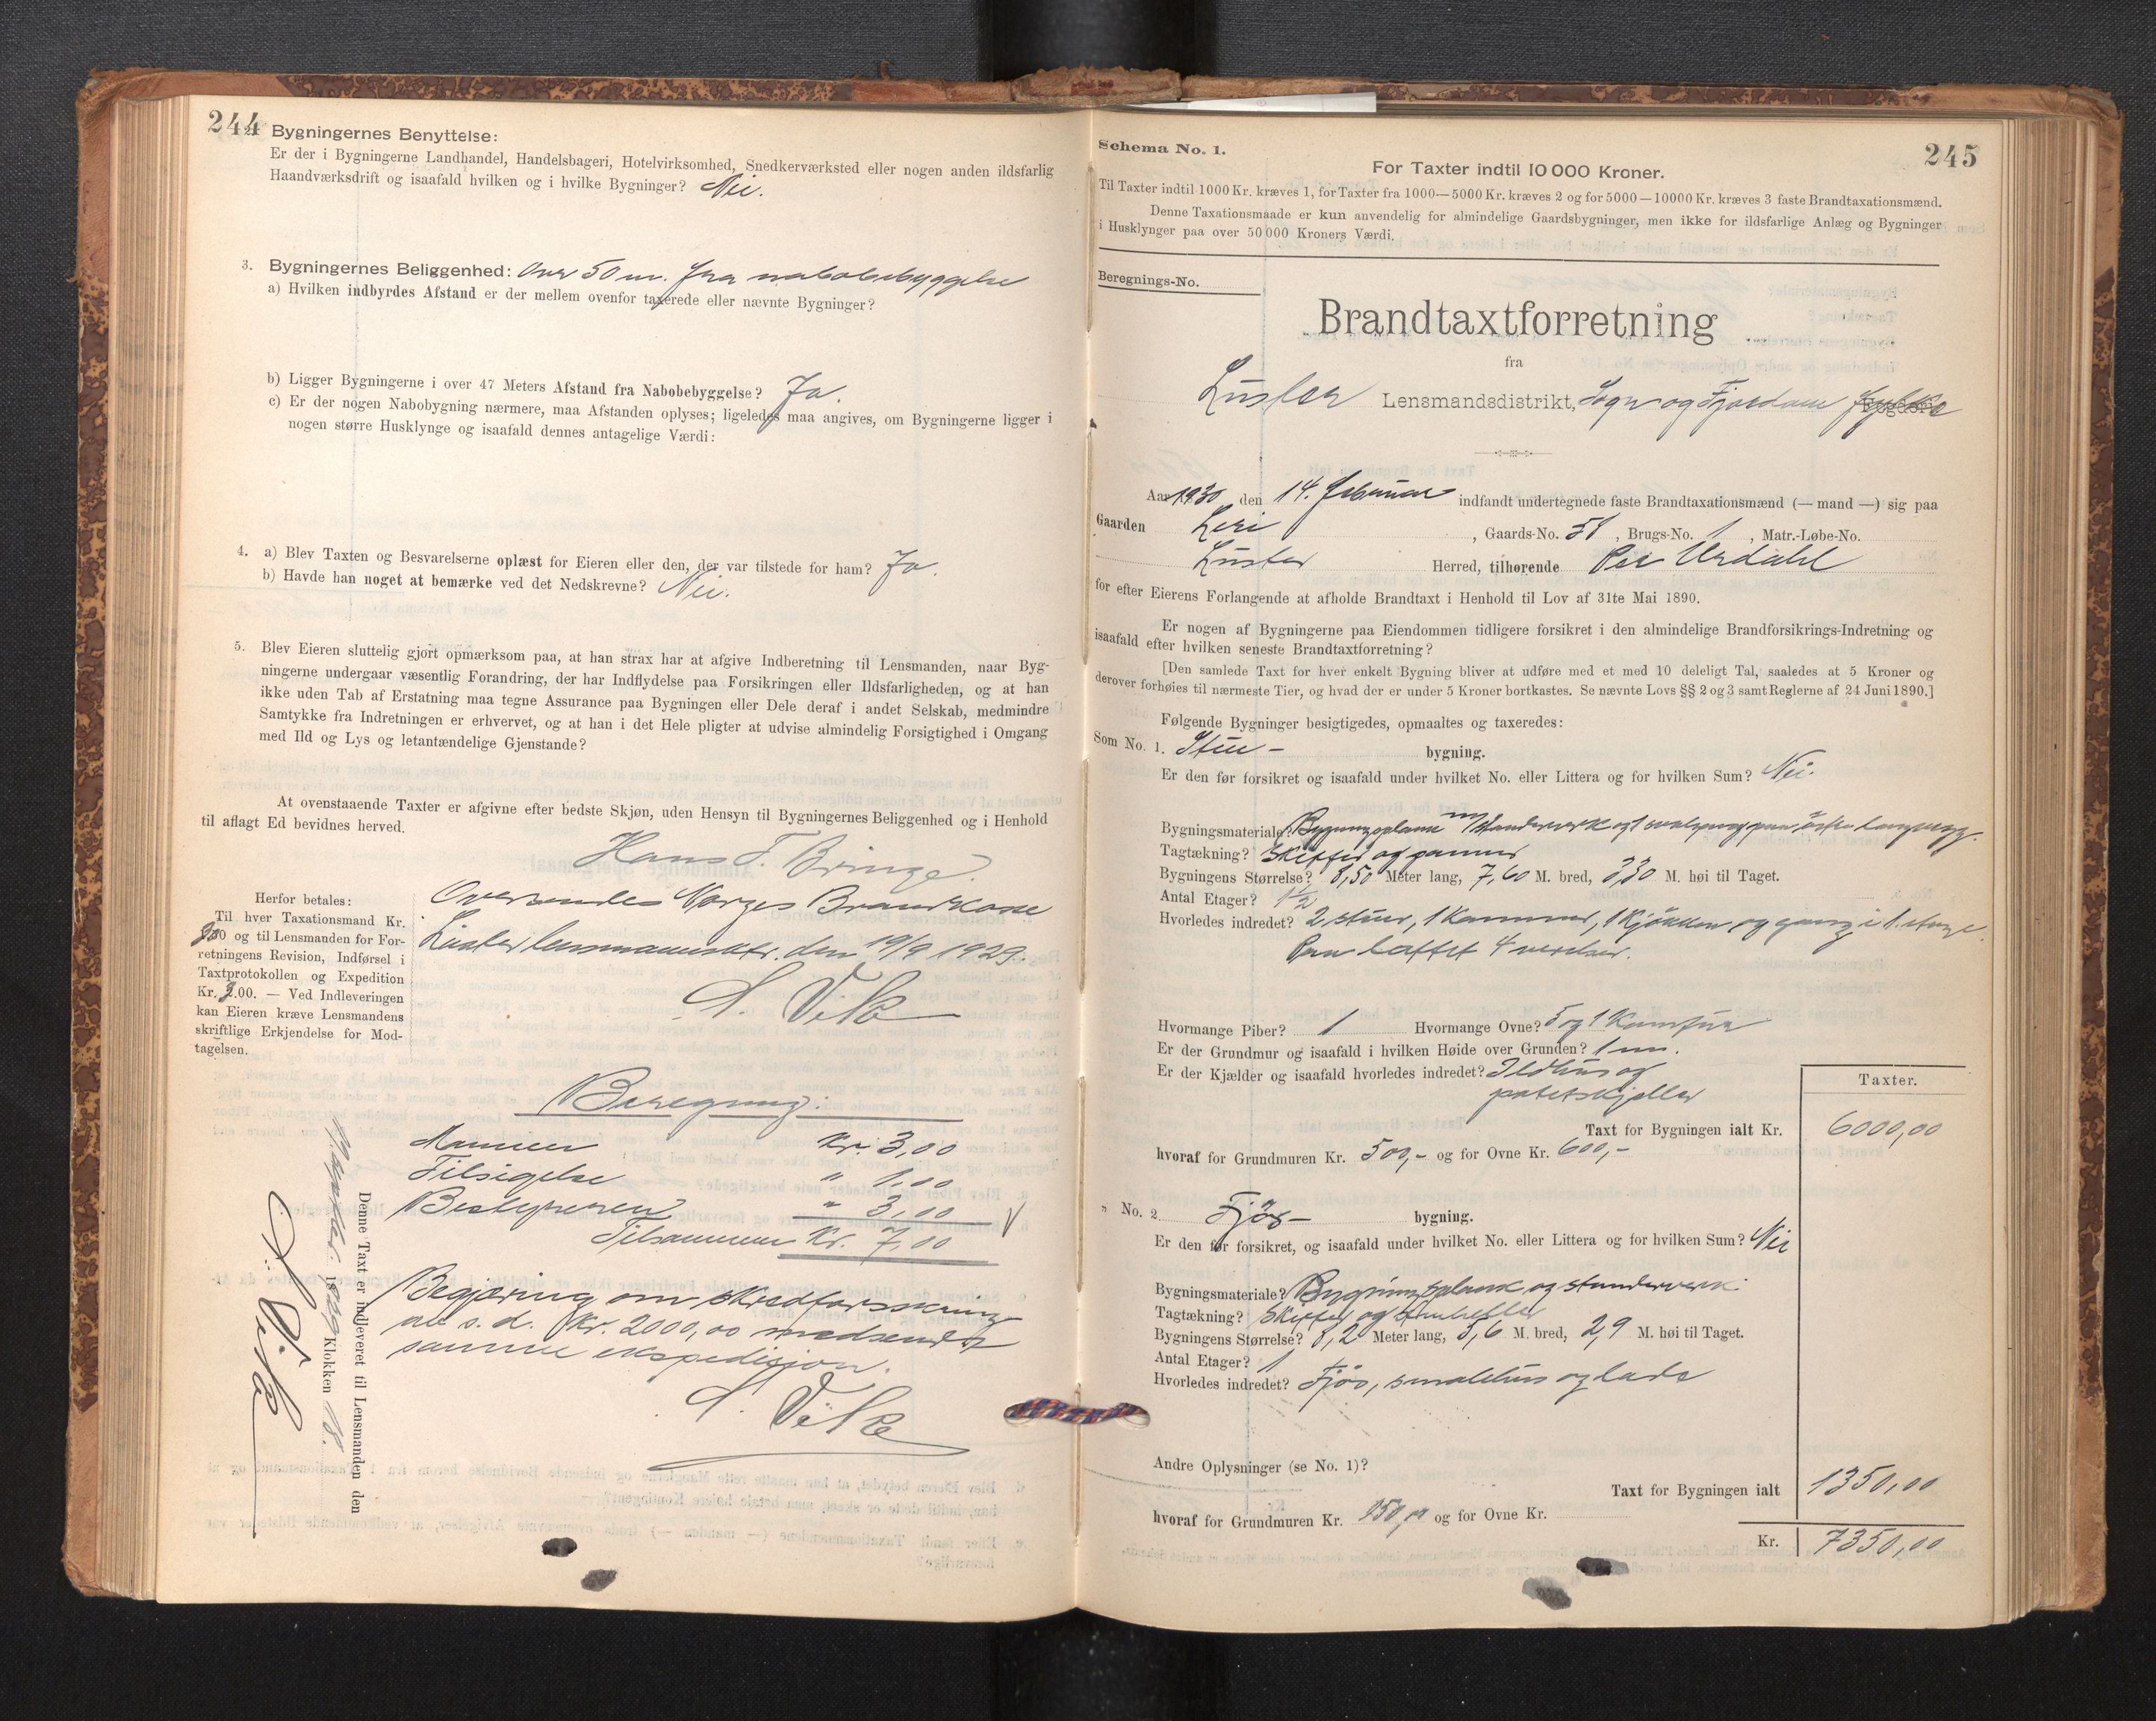 244
2. Bygningernes Benyttelse:
Er der i Bygningerne Landhandel, Handelsbageri, Hotelvirksomhed, Snedkerværksted eller nogen anden ildsfarlig
Haandværksdrift og isaafald hvilken og i hvilke Bygninger? Nei.
3. Bygningernes Beliggenhed: Over 50 m. fra nabobebyggelse
a) Hvilken indbyrdes Afstand er der mellem ovenfor taxerede eller nævnte Bygninger?
b) Ligger Bygningerne i over 47 Meters Afstand fra Nabobebyggelse? Ja.
c) Er der nogen Nabobygning nærmere, maa Afstanden oplyses; ligeledes maa angives, om Bygningerne ligger i
nogen større Husklynge og isaafald dennes antagelige Værdi:
4. a) Blev Taxten og Besvarelserne oplæst for Eieren eller den, der var tilstede for ham? Ja.
b) Havde han noget at bemærke ved det Nedskrevne? Nei.
5. Blev Eieren sluttelig gjort opmærksom paa, at han strax har at afgive Indberetning til Lensmanden, naar Byg-
ningerne undergaar væsentlig Forandring, der har Indflydelse paa Forsikringen eller Ildsfarligheden, og at han
ikke uden Tab af Erstatning maa tegne Assurance paa Bygningen eller Dele deraf i andet Selskab, medmindre
Samtykke fra Indretningen er erhvervet, og at han i det Hele pligter at udvise almindelig Forsigtighed i Omgang
med Ild og Lys og letantændelige Gjenstande?
At ovenstaaende Taxter er afgivne efter bedste Skjøn, uden Hensyn til Bygningernes Beliggenhed og i Henhold
til aflagt Ed bevidnes herved.
Hans T. Bringe.
Herfor betales:
Til hver Taxationsmand Kr.
3,00 og til Lensmanden for For-
retningens Revision, Indførsel i
Taxtprotokollen og Expedition
Kr. 3.00. — Ved Indleveringen
kan Eieren kræve Lensmandens
skriftlige Erkjendelse for Mod-
tagelsen.
Oversendes Norges Brandkasse
Luster lensmannsktr. den 19/9 1929.
A. Vik
Beregning:
Mannen Kr. 3,00
Tilsigelse " 1,00
Bestyreren " 3,00
Tilsammen Kr. 7,00
Begjæring om skredforsikring
av s. d. Kr. 2000,00 medsendt
samme ekspedisjon.
A. Vik
Denne Taxt er indleveret til Lensmanden den
Klokken 18.
A. Vik
245
Schema No. 1.
For Taxter indtil 10 000 Kroner.
Til Taxter indtil 1000 Kr. kræves 1, for Taxter fra 1000—5000 Kr. kræves 2 og for 5000—10000 Kr. kræves 3 faste Brandtaxationsmænd.
Denne Taxationsmaade er kun anvendelig for almindelige Gaardsbygninger, men ikke for ildsfarlige Anlæg og Bygninger
i Husklynger paa over 50 000 Kroners Værdi.
Beregnings-No.
Brandtaxtforretning
fra
Luster Lensmandsdistrikt, Sogn og Fjordane fylke
Aar 1930 den 14. februar indfandt undertegnede faste Brandtaxationsmænd (— mand —) sig paa
Gaarden Leri, Gaards-No. 51, Brugs-No. 1, Matr.-Løbe-No.
Luster Herred, tilhørende Per Urdahl
for efter Eierens Forlangende at afholde Brandtaxt i Henhold til Lov af 31te Mai 1890.
Er nogen af Bygningerne paa Eiendommen tidligere forsikret i den almindelige Brandforsikrings-Indretning og
isaafald efter hvilken seneste Brandtaxtforretning?
[Den samlede Taxt for hver enkelt Bygning bliver at udføre med et med 10 deleligt Tal, saaledes at 5 Kroner og
derover forhøies til nærmeste Tier, og hvad der er under 5 Kroner bortkastes. Se nævnte Lovs §§ 2 og 3 samt Reglerne af 24 Juni 1890.]
Følgende Bygninger besigtigedes, opmaaltes og taxeredes:
Som No. 1. Stue- bygning.
Er den før forsikret og isaafald under hvilket No. eller Littera og for hvilken Sum? Nei.
Bygningsmateriale? Bygningsplank m/standerverk og 1
Tagtækning? Skiffer og panner
Bygningens Størrelse? 8,50 Meter lang, 7,60 M. bred, 3,30 M. høi til Taget.
Antal Etager? 1½
Hvorledes indredet? 2 stuer, 1 kammer, 1 kjøkken og gang i 1. etage.
Paa loftet 4 værelser.
Hvormange Piber? 1 Hvormange Ovne? 5 og 1 komfur
Er der Grundmur og isaafald i hvilken Høide over Grunden? 1 m.
Er der Kjælder og isaafald hvorledes indredet? Ildhus og
potetskjeller
Taxter.
Taxt for Bygningen ialt Kr. 6000,00
hvoraf for Grundmuren Kr. 500,- og for Ovne Kr. 600,-
" No. 2 Fjøs- bygning.
Er den før forsikret, og isaafald under hvilket No. eller Littera og for hvilken Sum? Nei
Bygningsmateriale? Bygningsplank og standerverk
Tagtækning? Skiffer og
Bygningens Størrelse? 8,2 Meter lang, 5,6 M. bred, 2,9 M. høi til Taget.
Antal Etager? 1
Hvorledes indredet? Fjøs, smalehus og lade
Andre Oplysninger (se No. 1)?
Taxt for Bygningen ialt 1350,00
hvoraf for Grundmuren Kr. 150,00 og for Ovne Kr.
Kr. 7350,00